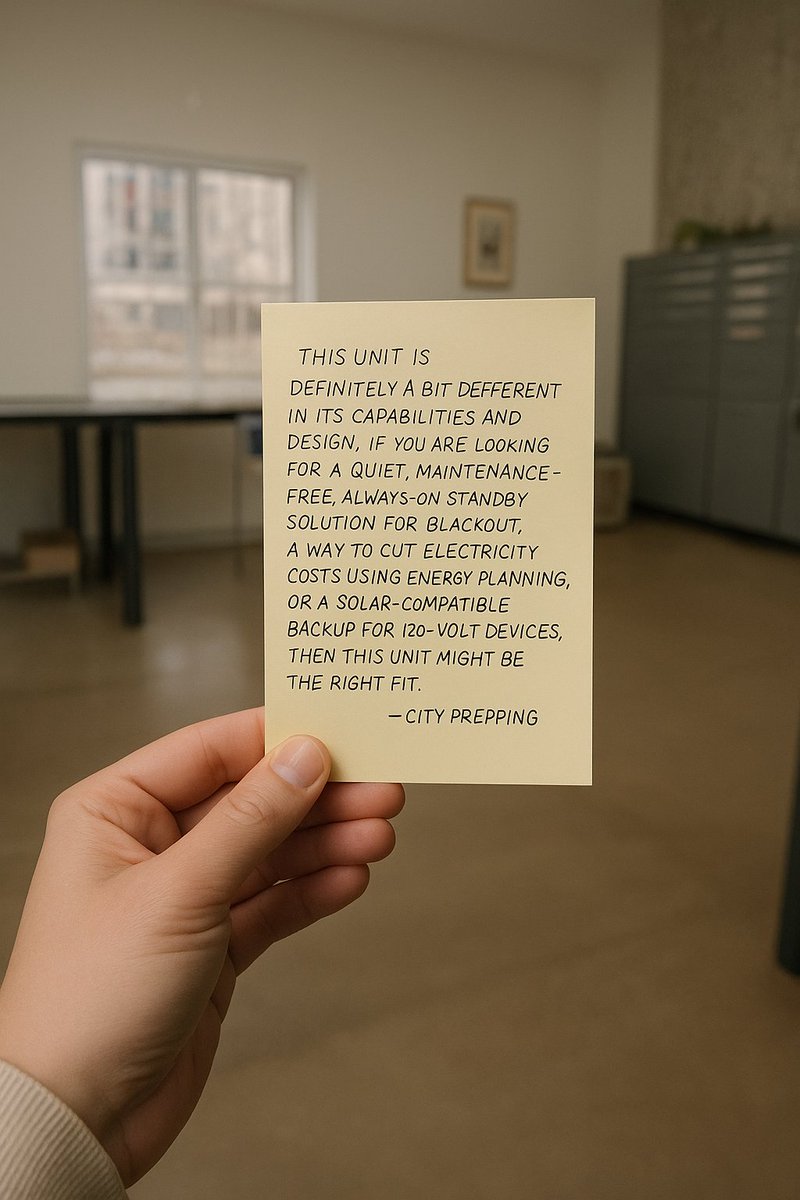 THIS UNIT IS
DEFINITELY A BIT DEFFERENT
IN ITS CAPABILITIES AND
DESIGN, IF YOU ARE LOOKING
FOR A QUIET, MAINTENANCE-
FREE, ALWAYS-ON STANDBY
SOLUTION FOR BLACKOUT,
A WAY TO CUT ELECTRICITY
COSTS USING ENERGY PLANNING,
OR A SOLAR-COMPATIBLE
BACKUP FOR 120-VOLT DEVICES,
THEN THIS UNIT MIGHT BE
THE RIGHT FIT.
–CITY PREPPING